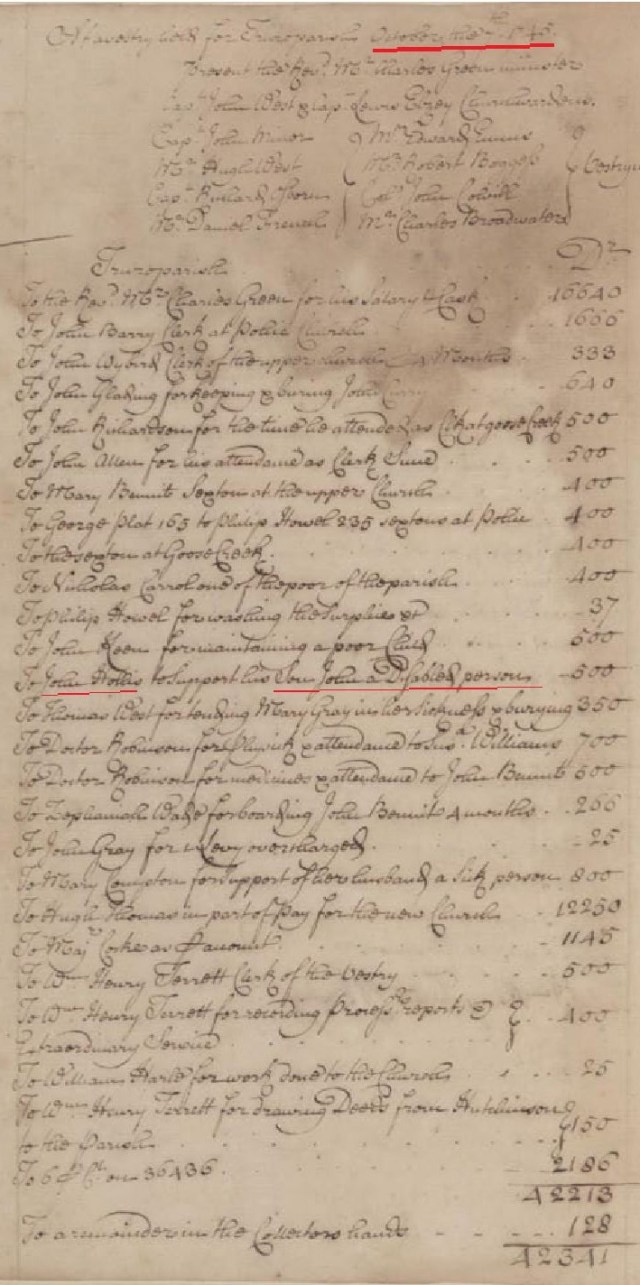 At a vestry held for Truro parish October the 1745
Present the Revd. Mr. Charles Green minister
Capt. John West & Capt. Lewis Elzey Churchwardens.
Capt. John Minor Mr. Edward Emms
Mr. Hugh West Mr. Robert Boggess
Capt. Richard Osborn Coll. John Colvill
Mr. Daniel French Mr. Charles Broadwater
Vestrym
Truro parish Dr.
To the Revd. Mr. Charles Green for his Salary & Cask 16640
To John Barry Clerk at Pohic Church 1666
To John Wybird Clerk of the upper church 4 Months 333
To John Glading for keeping & buring John Curry 640
To John Richardson for the time he attended as Clk at goose Creek 500
To John Allen for his attendance as Clerk Since 500
To Mary Bennit Sexton at the upper Church 400
To George Plat 165 to Philip Howel 235 sextons at Pohic 400
To the sexton at Goose Creek. 400
To Nicholas Carrol one of the poor of the parish 400
To Philip Howel for washing the Surplice &c 37
To John Keen for maintaining a poor Child 500
To John Hollis to Support his Son John a Disabled person 500
To Thomas West for tending Mary Gray in her Sickness & burying 350
To Doctor Robinson for Phisick & attendance to Susa. Williams 700
To Doctor Robinson for medicines & attendance to John Bennit 500
To Zephaniah Wade for boarding John Bennit 4 months 266
To John Gray for a Levy overcharged. 25
To Mary Compton for Support of her husband a Sick person 800
To Hugh Thomas in part of Pay for the new Church 12250
To Majr. Cocke as account 1145
To Wm. Henry Terrett Clerk of the Vestry 500
To Wm. Henry Terrett for recording Process. reports & 400
Extraordinary Service
To William Harle for work done to the Church 25
To Wm. Henry Terrett for drawing Deeds from Hutchinson 150
to the Parish
To 6 P Ct. on 36436. 2186
42213
To a remainder in the Collectors hands 128
42341